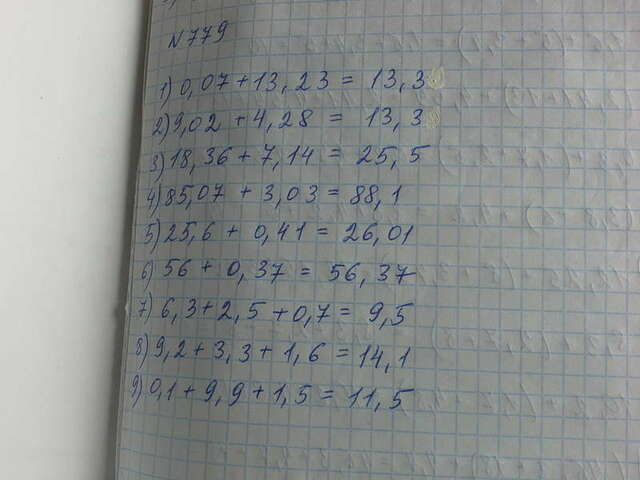 N779
1) 0,07 + 13,23 = 13,3
2) 9,02 + 4,28 = 13,3
3) 18,36 + 7,14 = 25,5
4) 85,07 + 3,03 = 88,1
5) 25,6 + 0,41 = 26,01
6) 56 + 0,37 = 56,37
7) 6,3 + 2,5 + 0,7 = 9,5
8) 9,2 + 3,3 + 1,6 = 14,1
9) 0,1 + 9,9 + 1,5 = 11,5